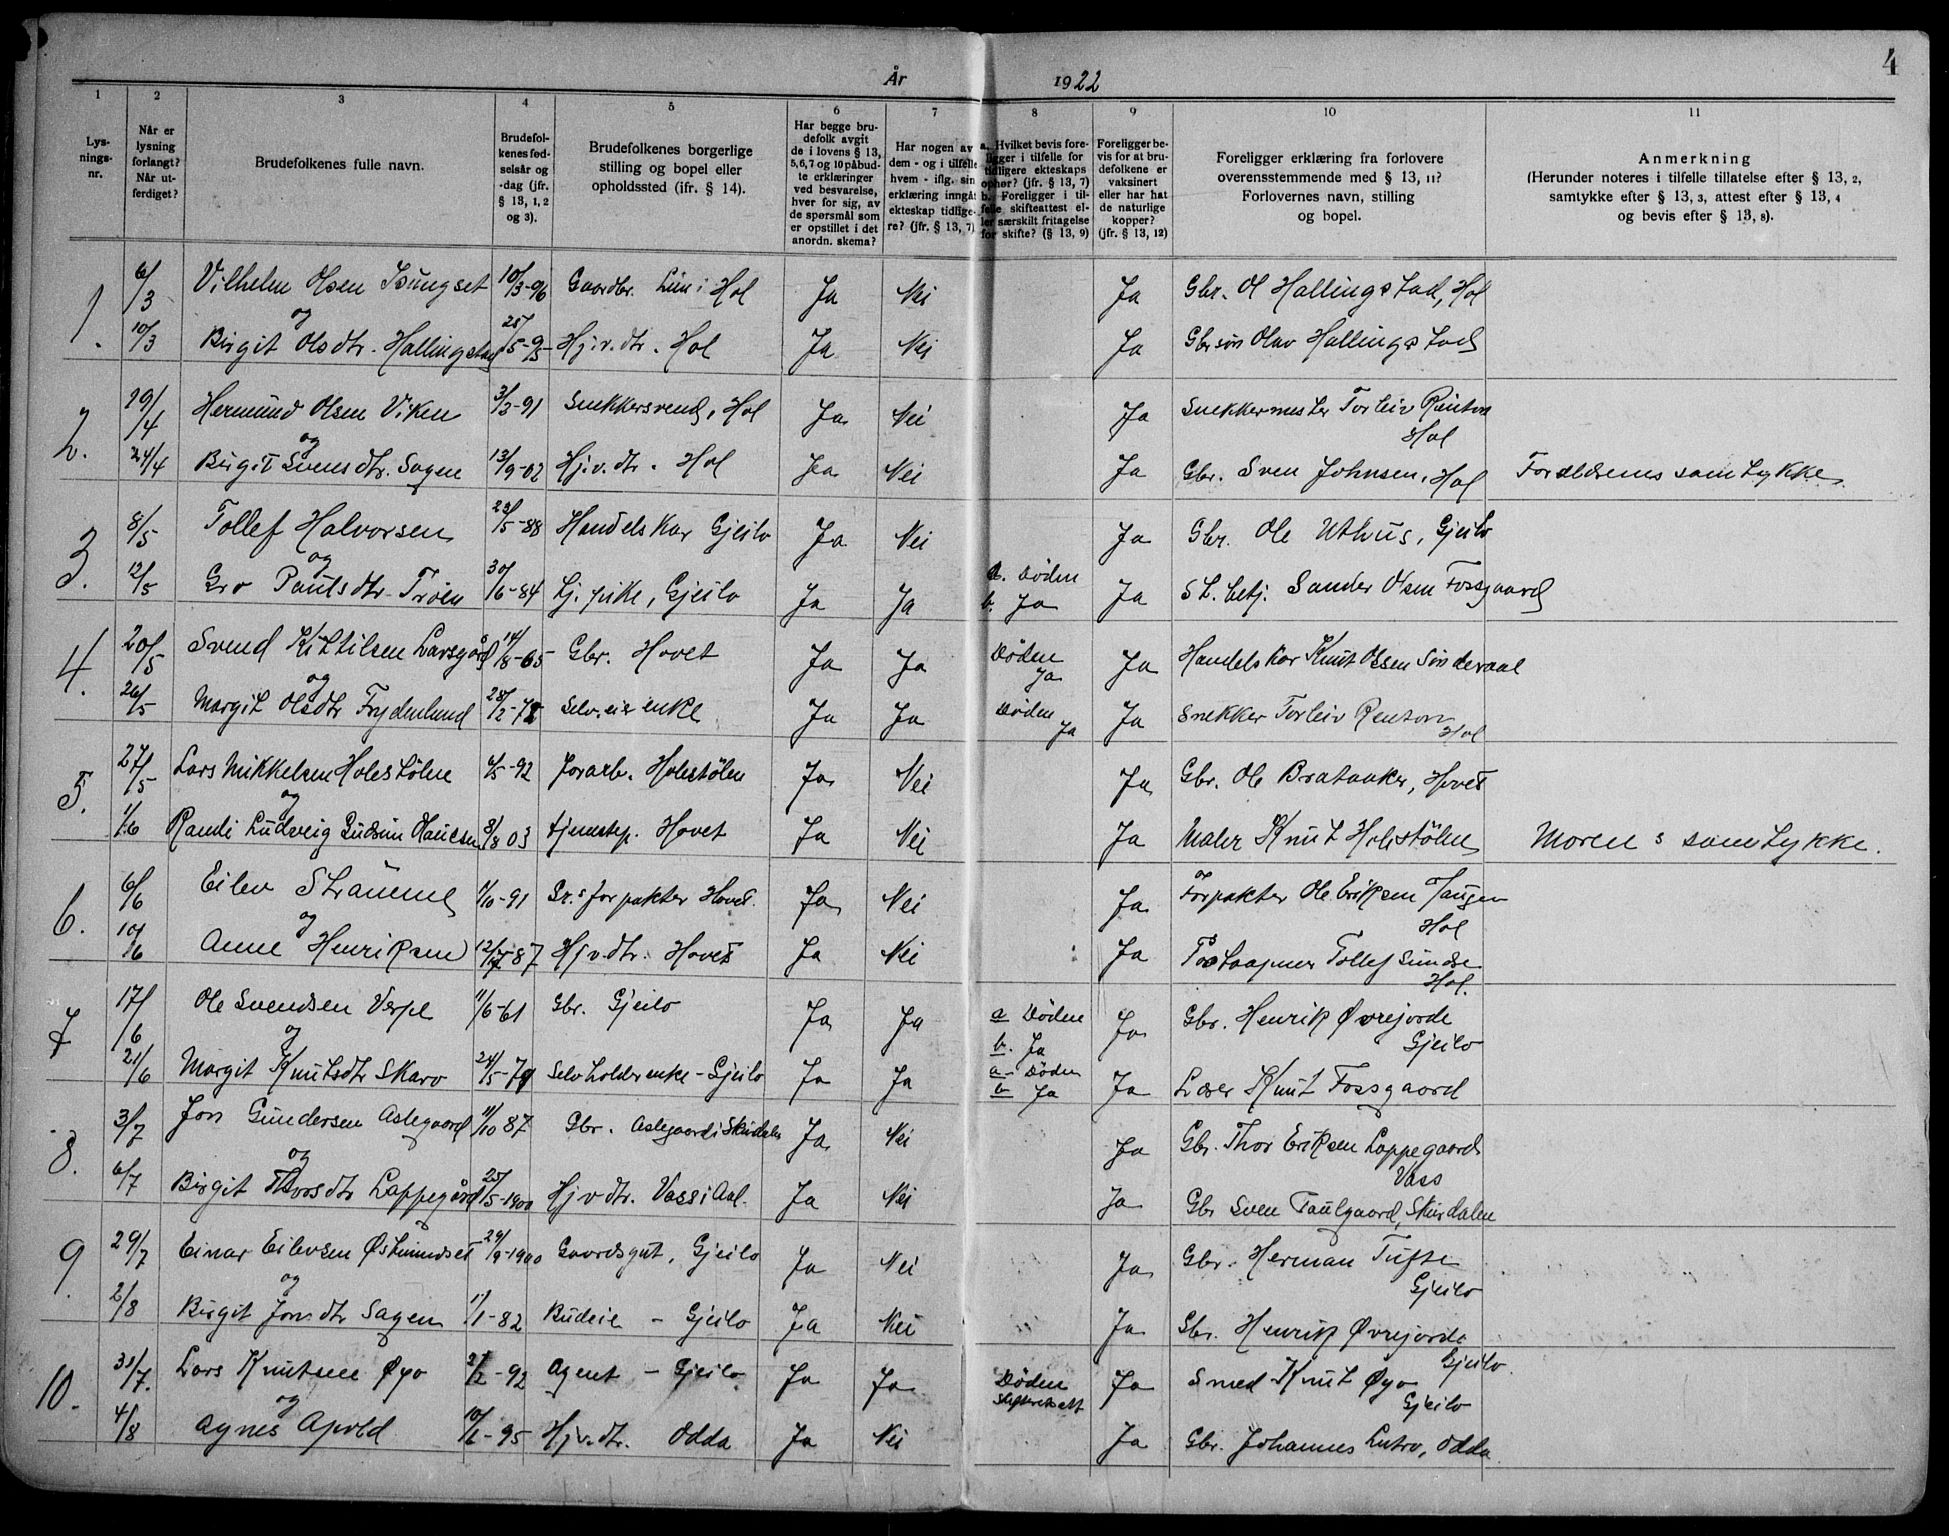 År 1922
4
1 2 3 4 5 6 7 8 9 10 11
Lys-
nings-
nr.
Når er
lysning
forlangt?
Når ut-
ferdiget?
Brudefolkenes fulle navn.
Brudefol-
kenes fød-
selsår og
-dag (jfr.
§ 13, 1, 2
og 3).
Brudefolkenes borgerlige
stilling og bopel eller
opholdssted (ifr. § 14).
Har begge bru-
defolk avgit
de i lovens § 13,
5, 6, 7 og 10 påbud-
te erklæringer
ved besvarelse,
hver for sig, av
de spørsmål som
er opstillet i det
anordn. skema?
Har nogen av
dem - og i tilfelle
hvem - iflg. sin
erklæring inngåt
ekteskap tidlige-
re? (jfr. § 13, 7)
a. Hvilket bevis fore-
ligger i tilfelle for
tidligere ekteskaps
ophør? (jfr. § 13, 7)
b. Foreligger i til-
felle skifteattest el-
ler særskilt fritagelse
for skifte? (§ 13, 9)
Foreligger be-
vis for at bru-
defolkene er
vaksinert
eller har hat
de naturlige
kopper?
(jfr. § 13, 12)
Foreligger erklæring fra forlovere
overensstemmende med § 13, 11?
Forlovernes navn, stilling
og bopel.
Anmerkning
(Herunder noteres i tilfelle tillatelse efter § 13, 2,
samtykke efter § 13, 3, attest efter § 13, 4
og bevis efter § 13, 8).
1. 6/3 Vilhelm Olsen Isungset 10/3-96 Gaardbr. Lun i Hol Ja Nei Ja Gbr. Ol Hallingstad, Hol
og
10/3 Birgit Olsdtr. Hallingstad 25/5-95 Hj.v.dtr. Hol Ja Nei Ja Gbr søn Olav Hallingstad
2. 19/4 Hermund Olsen Viken 3/3-91 Snekkersvend, Hol Ja Nei Ja Snekkermester Torleiv Renton
og Hol
24/4 Birgit Svensdtr. Sagen 13/9-02 Hj.v.dtr. Hol Ja Nei Ja Gbr. Sven Johnsen, Hol Forældrenes samtykke.
3. 8/5 Tollef Halvorsen 23/5-88 Handelskar Gjeilo Ja Nei Ja Gbr. Ole Uthus, Gjeilo
og
12/5 Gro Paulsdtr. Trøen 30/6-84 Tj. pike, Gjeilo Ja Ja a. Døden b. Ja Ja St. betj. Sander Olsen Fossgaard
4. 20/5 Svend Kittilsen Larsgård 14/8-65 Gbr. Hovet Ja Ja Døden Ja Ja Handelskar Knut Olssen Sønderaal
og
26/5 Margit Olsdtr Frydenlund 28/2-72 Selv.eier enke Ja Ja Døden Ja Ja Snekker Torleiv Renton
Hol
5. 27/5 Lars Mikkelsen Holestølen 4/5-92 Jorarb. Holestølen Ja Nei Ja Gbr. Ole Brataaker, Hovet
og
1/6 Randi Ludveig Gudrun Hansen 8/8 03 tjenestep. Hovet Ja Nei Ja Maler Knut Holestølen Morens samtykke.
6. 6/6 Eilev Strømme 1/10-91 Br.s forpakter Hovet. Ja Nei Ja Forpakter Ole Eriksen Haugen
og Hol
10/6 Anne Henriksen 12/7-87 Hj.v.dtr. Hovet Ja Nei Ja Postaapner Tollef Sundre
Hol.
7 17/6 Ole Svendsen Verpe 11/6-61 Gbr. Gjeilo Ja Ja a Døden b. Ja Ja Gbr. Henrik Øvrejorde
og Gjeilo
21/6 Margit Knutsdtr Skaro 24/5-79 Selvholder enke - Gjeilo Ja Ja a- Døden b Ja Ja Lærer Knut Fossgaard
8. 3/7 Jon Gundersen Aslegaard 11/10 87 Gbr. Aslegaard i Skurdalen Ja Nei Ja Gbr. Thor Eriksen Lappegaard
og Vass
6/7 Birgit Thorsdtr Lappegård 25/5-1900 Hj v dtr. Vass i Aal. Ja Nei Ja Gbr Sven Taulgaard, Skurdalen
9. 29/7 Einar Eilevsen Østmundset 29/9-1900 Gaardsgut, Gjeilo Ja Nei Ja Gbr. Herman Tufte
og Gjeilo
2/8 Birgit Jonsdtr Sagen 11/1-82 Budeie - Gjeilo Ja Nei Ja Gbr. Henrik Øvrejorde
Gjeilo
10. 31/7. Lars Knutsen Øyo 21/2-92 Agent - Gjeilo Ja Ja Døden Ja Smed Knut Øyo
og Gjeilo
4/8 Agnes Apold 10/1-95 Hj.v.dtr. Odda Ja Nei Ja Gbr. Johannes Lutro, Odda